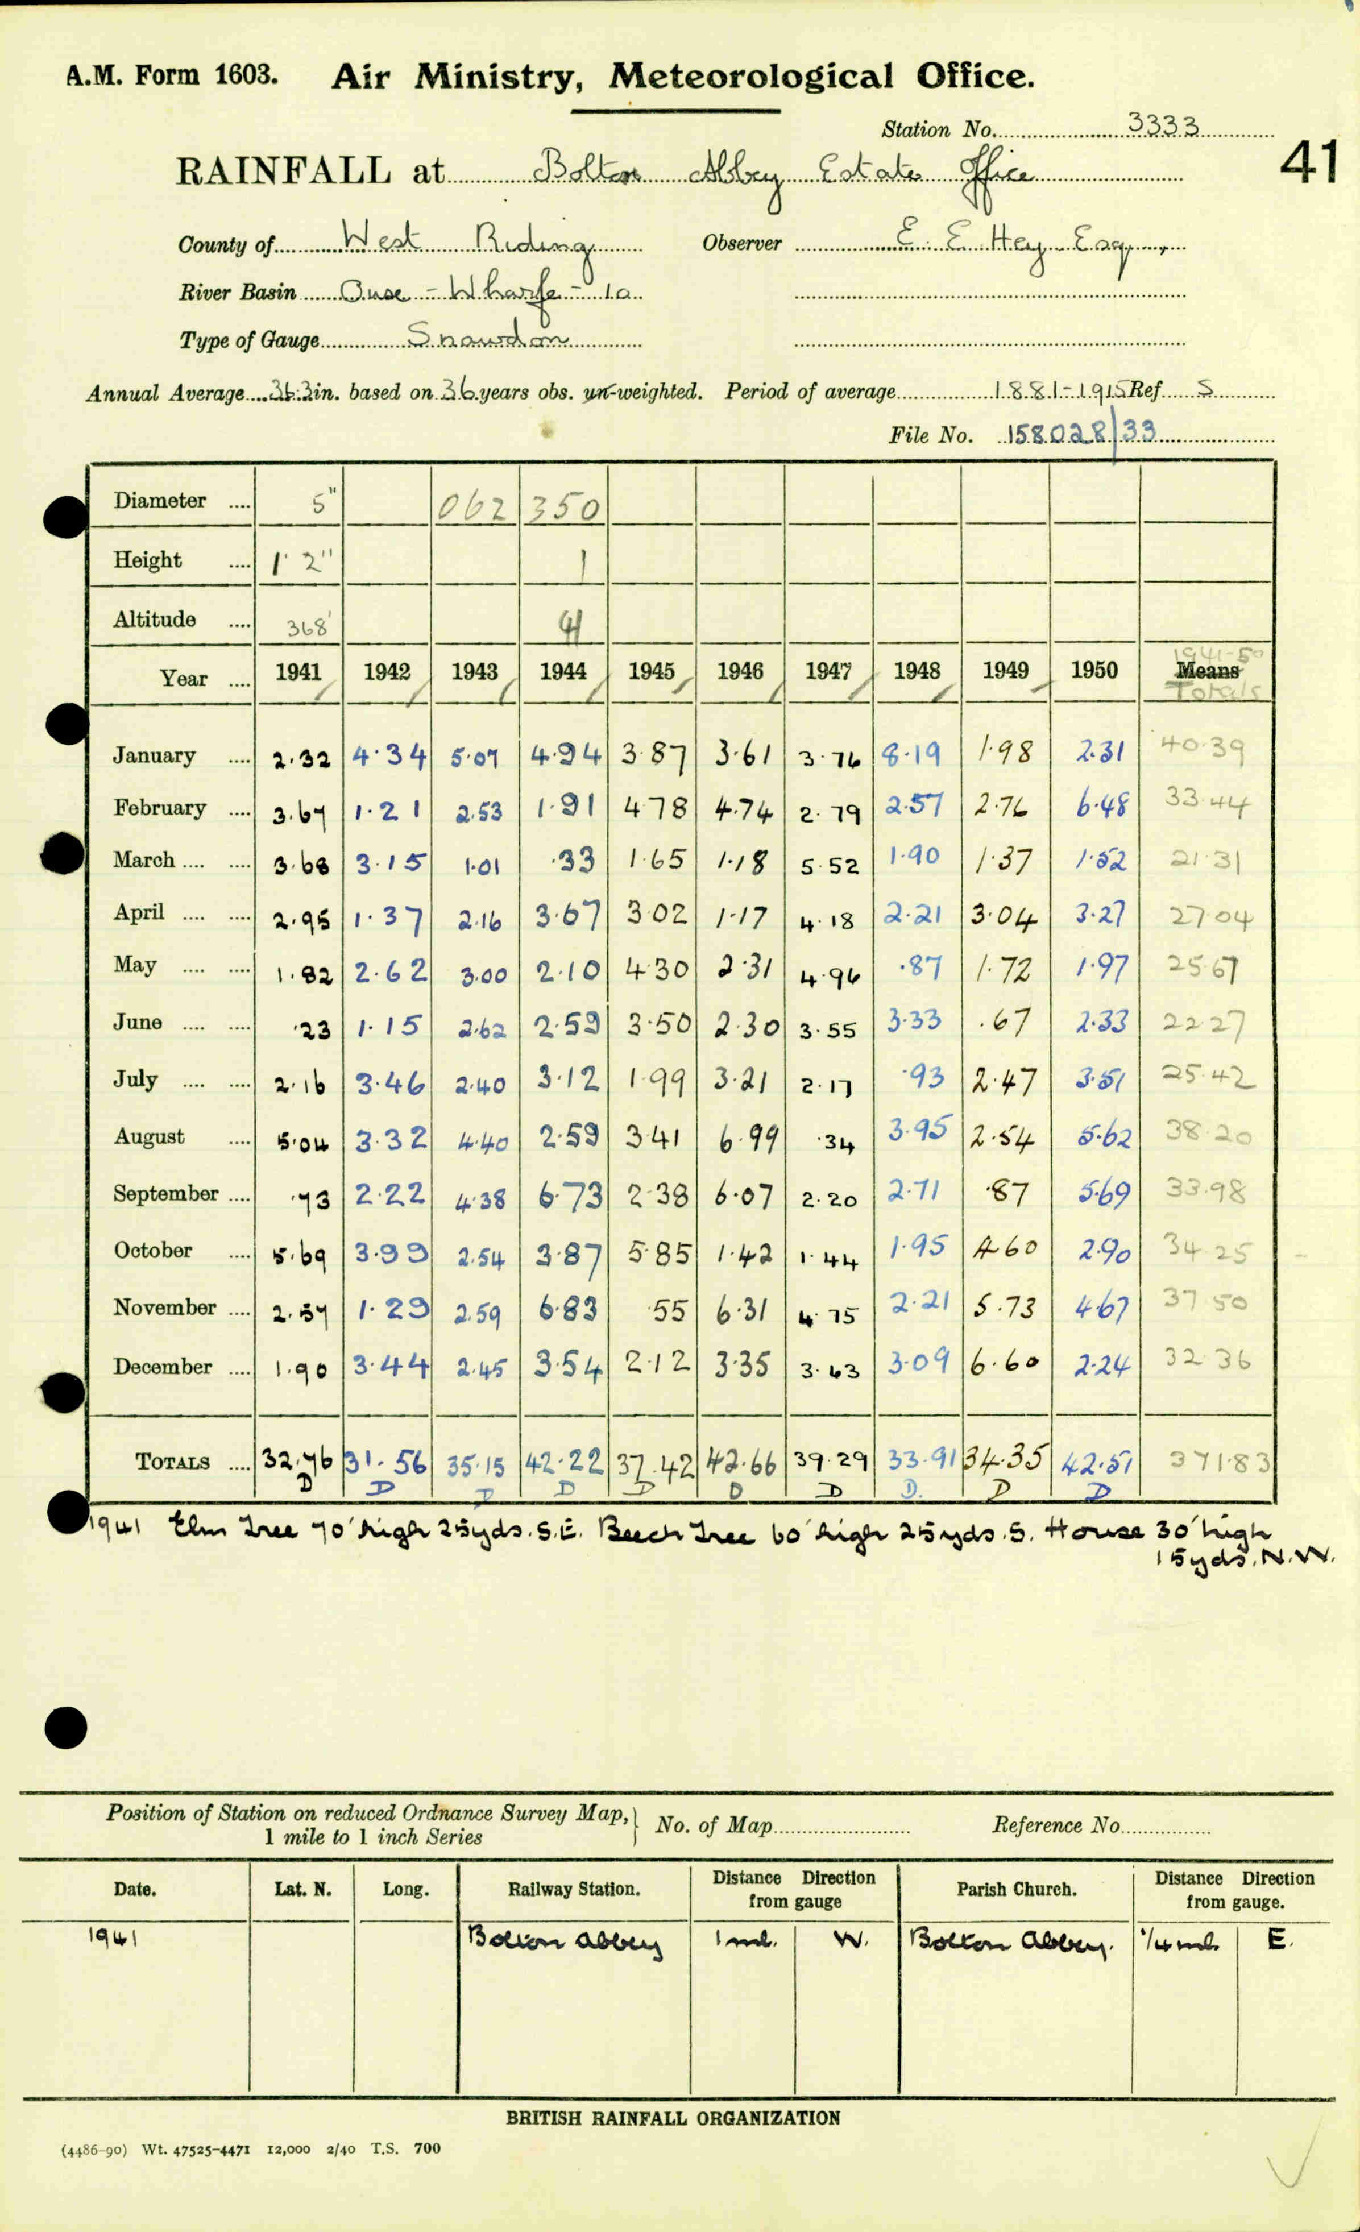 A.M. Form 1603. Air Ministry, Meteorological Office.
Station No. 3333
41
RAINFALL at Bolton Abbey Estate Office
County of West Riding Observer E. E. Hey Esq.,
River Basin Ouse - Wharfe - 10
Type of Gauge Snowdon
Annual Average 36.3 in. based on 36 years obs. un-weighted. Period of average 1881-1915 Ref S
File No. 158028/33
Diameter .... 5" 062 350
Height .... 1' 2" 1
Altitude .... 368' 41
1941-50
Year .... 1941 1942 1943 1944 1945 1946 1947 1948 1949 1950 Means
Totals
January .... 2.32 4.34 5.07 4.94 3.87 3.61 3.76 8.19 1.98 2.31 40.39
February .... 3.67 1.21 2.53 1.91 4.78 4.74 2.79 2.57 2.76 6.48 33.44
March .... .... 3.68 3.15 1.01 .33 1.65 1.18 5.52 1.90 1.37 1.52 21.31
April .... .... 2.95 1.37 2.16 3.67 3.02 1.17 4.18 2.21 3.04 3.27 27.04
May .... .... 1.82 2.62 3.00 2.10 4.30 2.31 4.96 .87 1.72 1.97 25.67
June .... .... .23 1.15 2.62 2.59 3.50 2.30 3.55 3.33 .67 2.33 22.27
July .... .... 2.16 3.46 2.40 3.12 1.99 3.21 2.17 .93 2.47 3.51 25.42
August .... 5.04 3.32 4.40 2.59 3.41 6.99 .34 3.95 2.54 5.62 38.20
September .... .73 2.22 4.38 6.73 2.38 6.07 2.20 2.71 .87 5.69 33.98
October .... 5.69 3.99 2.54 3.87 5.85 1.42 1.44 1.95 4.60 2.90 34.25
November .... 2.57 1.29 2.59 6.83 .55 6.31 4.75 2.21 5.73 4.67 37.50
December .... 1.90 3.44 2.45 3.54 2.12 3.35 3.63 3.09 6.60 2.24 32.36
TOTALS .... 32.76 31.56 35.15 42.22 37.42 42.66 39.29 33.91 34.35 42.51 371.83
D D D D D D D D. D D
1941 Elm Tree 70' high 25yds. S.E. Beech Tree 60' high 25yds. S. House 30' high
15yds. N.W.
Position of Station on reduced Ordnance Survey Map,
1 mile to 1 inch Series
No. of Map Reference No.
Date. Lat. N. Long. Railway Station. Distance Direction from gauge Parish Church. Distance Direction from gauge.
1941 Bolton Abbey 1 ml. W. Bolton Abbey. 1/4 ml. E.
BRITISH RAINFALL ORGANIZATION
(4486-90) Wt. 47525-4471 12,000 2/40 T.S. 700